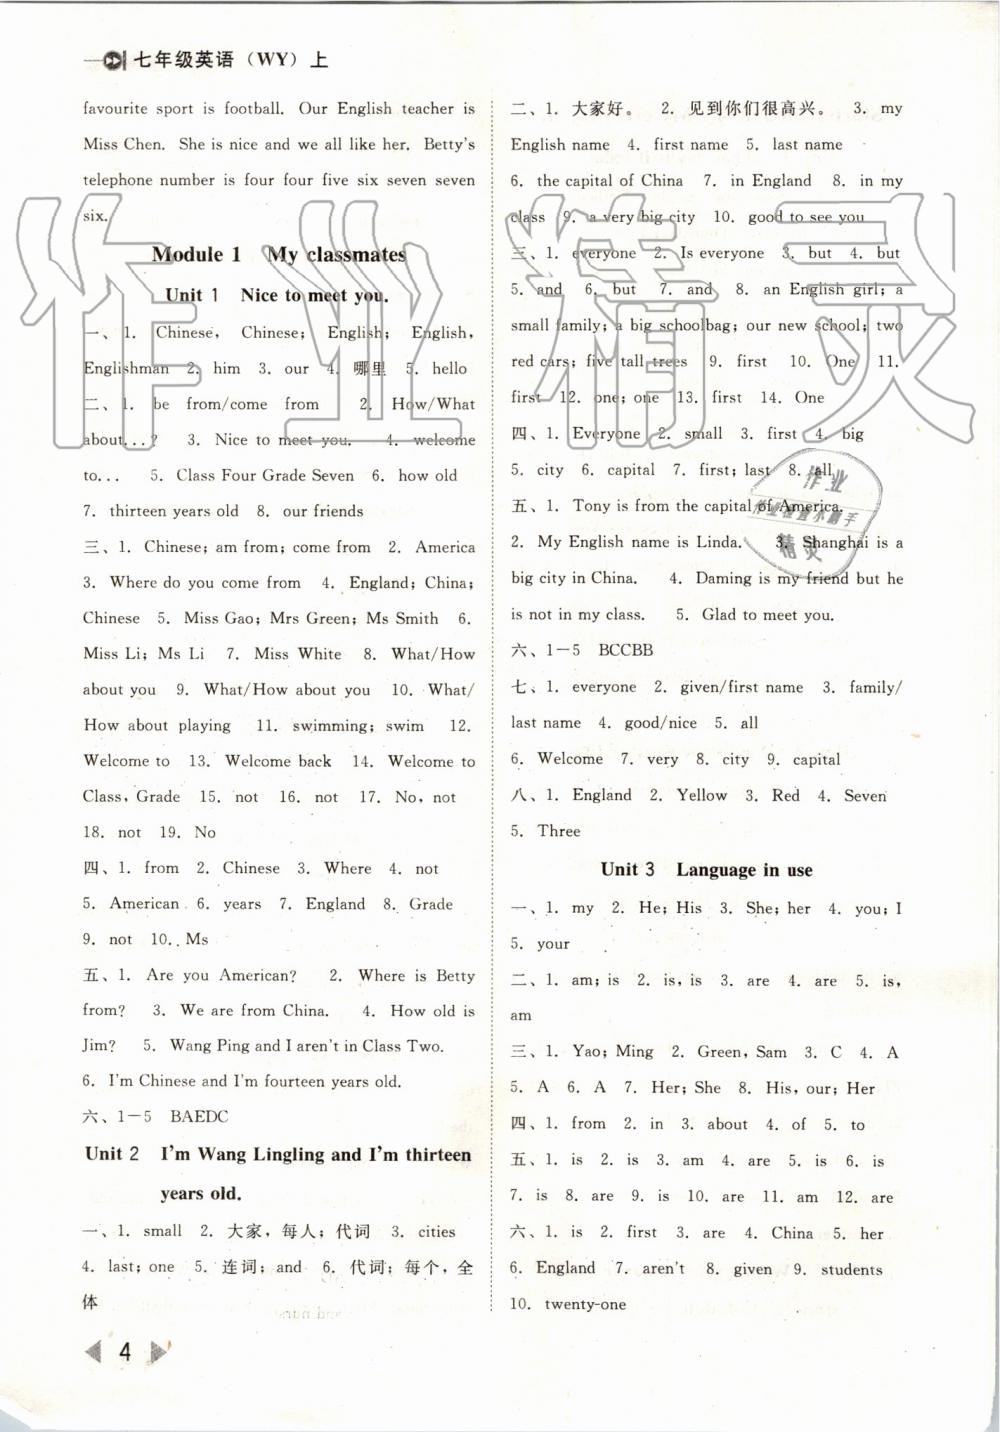 七年级英语（WY）上
favourite sport is football. Our English teacher is
Miss Chen. She is nice and we all like her. Betty's
telephone number is four four five six seven seven
six.
Module 1 My classmates
Unit 1 Nice to meet you.
一、1. Chinese, Chinese; English; English,
Englishman 2. him 3. our 4. 哪里 5. hello
二、1. be from/come from 2. How/What
about...? 3. Nice to meet you. 4. welcome
to... 5. Class Four Grade Seven 6. how old
7. thirteen years old 8. our friends
三、1. Chinese; am from; come from 2. America
3. Where do you come from 4. England; China;
Chinese 5. Miss Gao; Mrs Green; Ms Smith 6.
Miss Li; Ms Li 7. Miss White 8. What/How
about you 9. What/How about you 10. What/
How about playing 11. swimming; swim 12.
Welcome to 13. Welcome back 14. Welcome to
Class, Grade 15. not 16. not 17. No, not
18. not 19. No
四、1. from 2. Chinese 3. Where 4. not
5. American 6. years 7. England 8. Grade
9. not 10. Ms
五、1. Are you American? 2. Where is Betty
from? 3. We are from China. 4. How old is
Jim? 5. Wang Ping and I aren't in Class Two.
6. I'm Chinese and I'm fourteen years old.
六、1－5 BAEDC
Unit 2 I'm Wang Lingling and I'm thirteen
years old.
一、1. small 2. 大家，每人；代词 3. cities
4. last; one 5. 连词；and 6. 代词；每个，全
体
4
二、1. 大家好。 2. 见到你们很高兴。 3. my
English name 4. first name 5. last name
6. the capital of China 7. in England 8. in my
class 9. a very big city 10. good to see you
三、1. everyone 2. Is everyone 3. but 4. but
5. and 6. but 7. and 8. an English girl; a
small family; a big schoolbag; our new school; two
red cars; five tall trees 9. first 10. One 11.
first 12. one; one 13. first 14. One
四、1. Everyone 2. small 3. first 4. big
5. city 6. capital 7. first; last 8. all
五、1. Tony is from the capital of America.
2. My English name is Linda. 3. Shanghai is a
big city in China. 4. Daming is my friend but he
is not in my class. 5. Glad to meet you.
六、1－5 BCCBB
七、1. everyone 2. given/first name 3. family/
last name 4. good/nice 5. all
6. Welcome 7. very 8. city 9. capital
八、1. England 2. Yellow 3. Red 4. Seven
5. Three
Unit 3 Language in use
一、1. my 2. He; His 3. She; her 4. you; I
5. your
二、1. am; is 2. is, is 3. are 4. are 5. is,
am
三、1. Yao; Ming 2. Green, Sam 3. C 4. A
5. A 6. A 7. Her; She 8. His, our; Her
四、1. from 2. in 3. about 4. of 5. to
五、1. is 2. is 3. am 4. are 5. is 6. is
7. is 8. are 9. is 10. are 11. am 12. are
六、1. is 2. first 3. are 4. China 5. her
6. England 7. aren't 8. given 9. students
10. twenty-one
作业精灵
作业
作业检查小助手
精灵